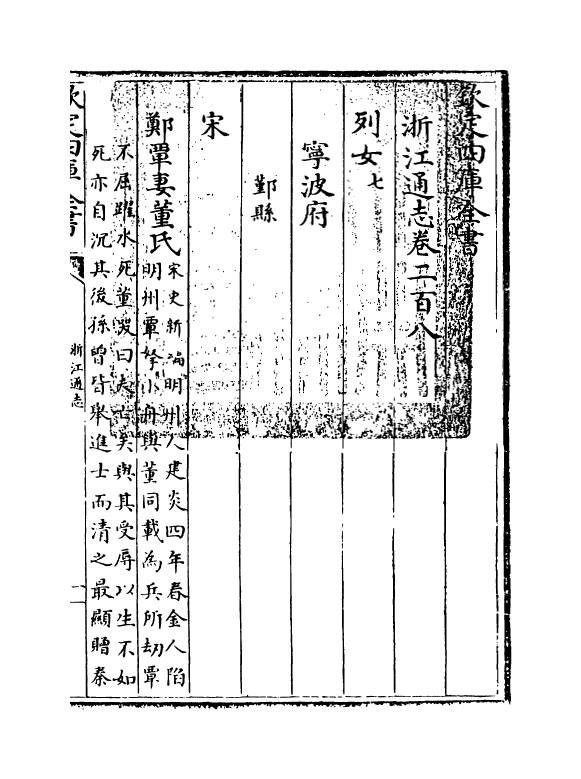 欽定四庫全書
浙江通志卷二百八
列女七
寧波府
鄞縣
宋
鄭覃妻董氏宋史新編明州人建炎四年春金人陷
明州覃拏小舟與董同載為兵所刼覃
不屈躍水死董泣曰夫亡矣與其受辱以生不如
死亦自沉其後孫曾皆舉進士而清之最顯贈秦
欽定四庫全書
浙江通志
一